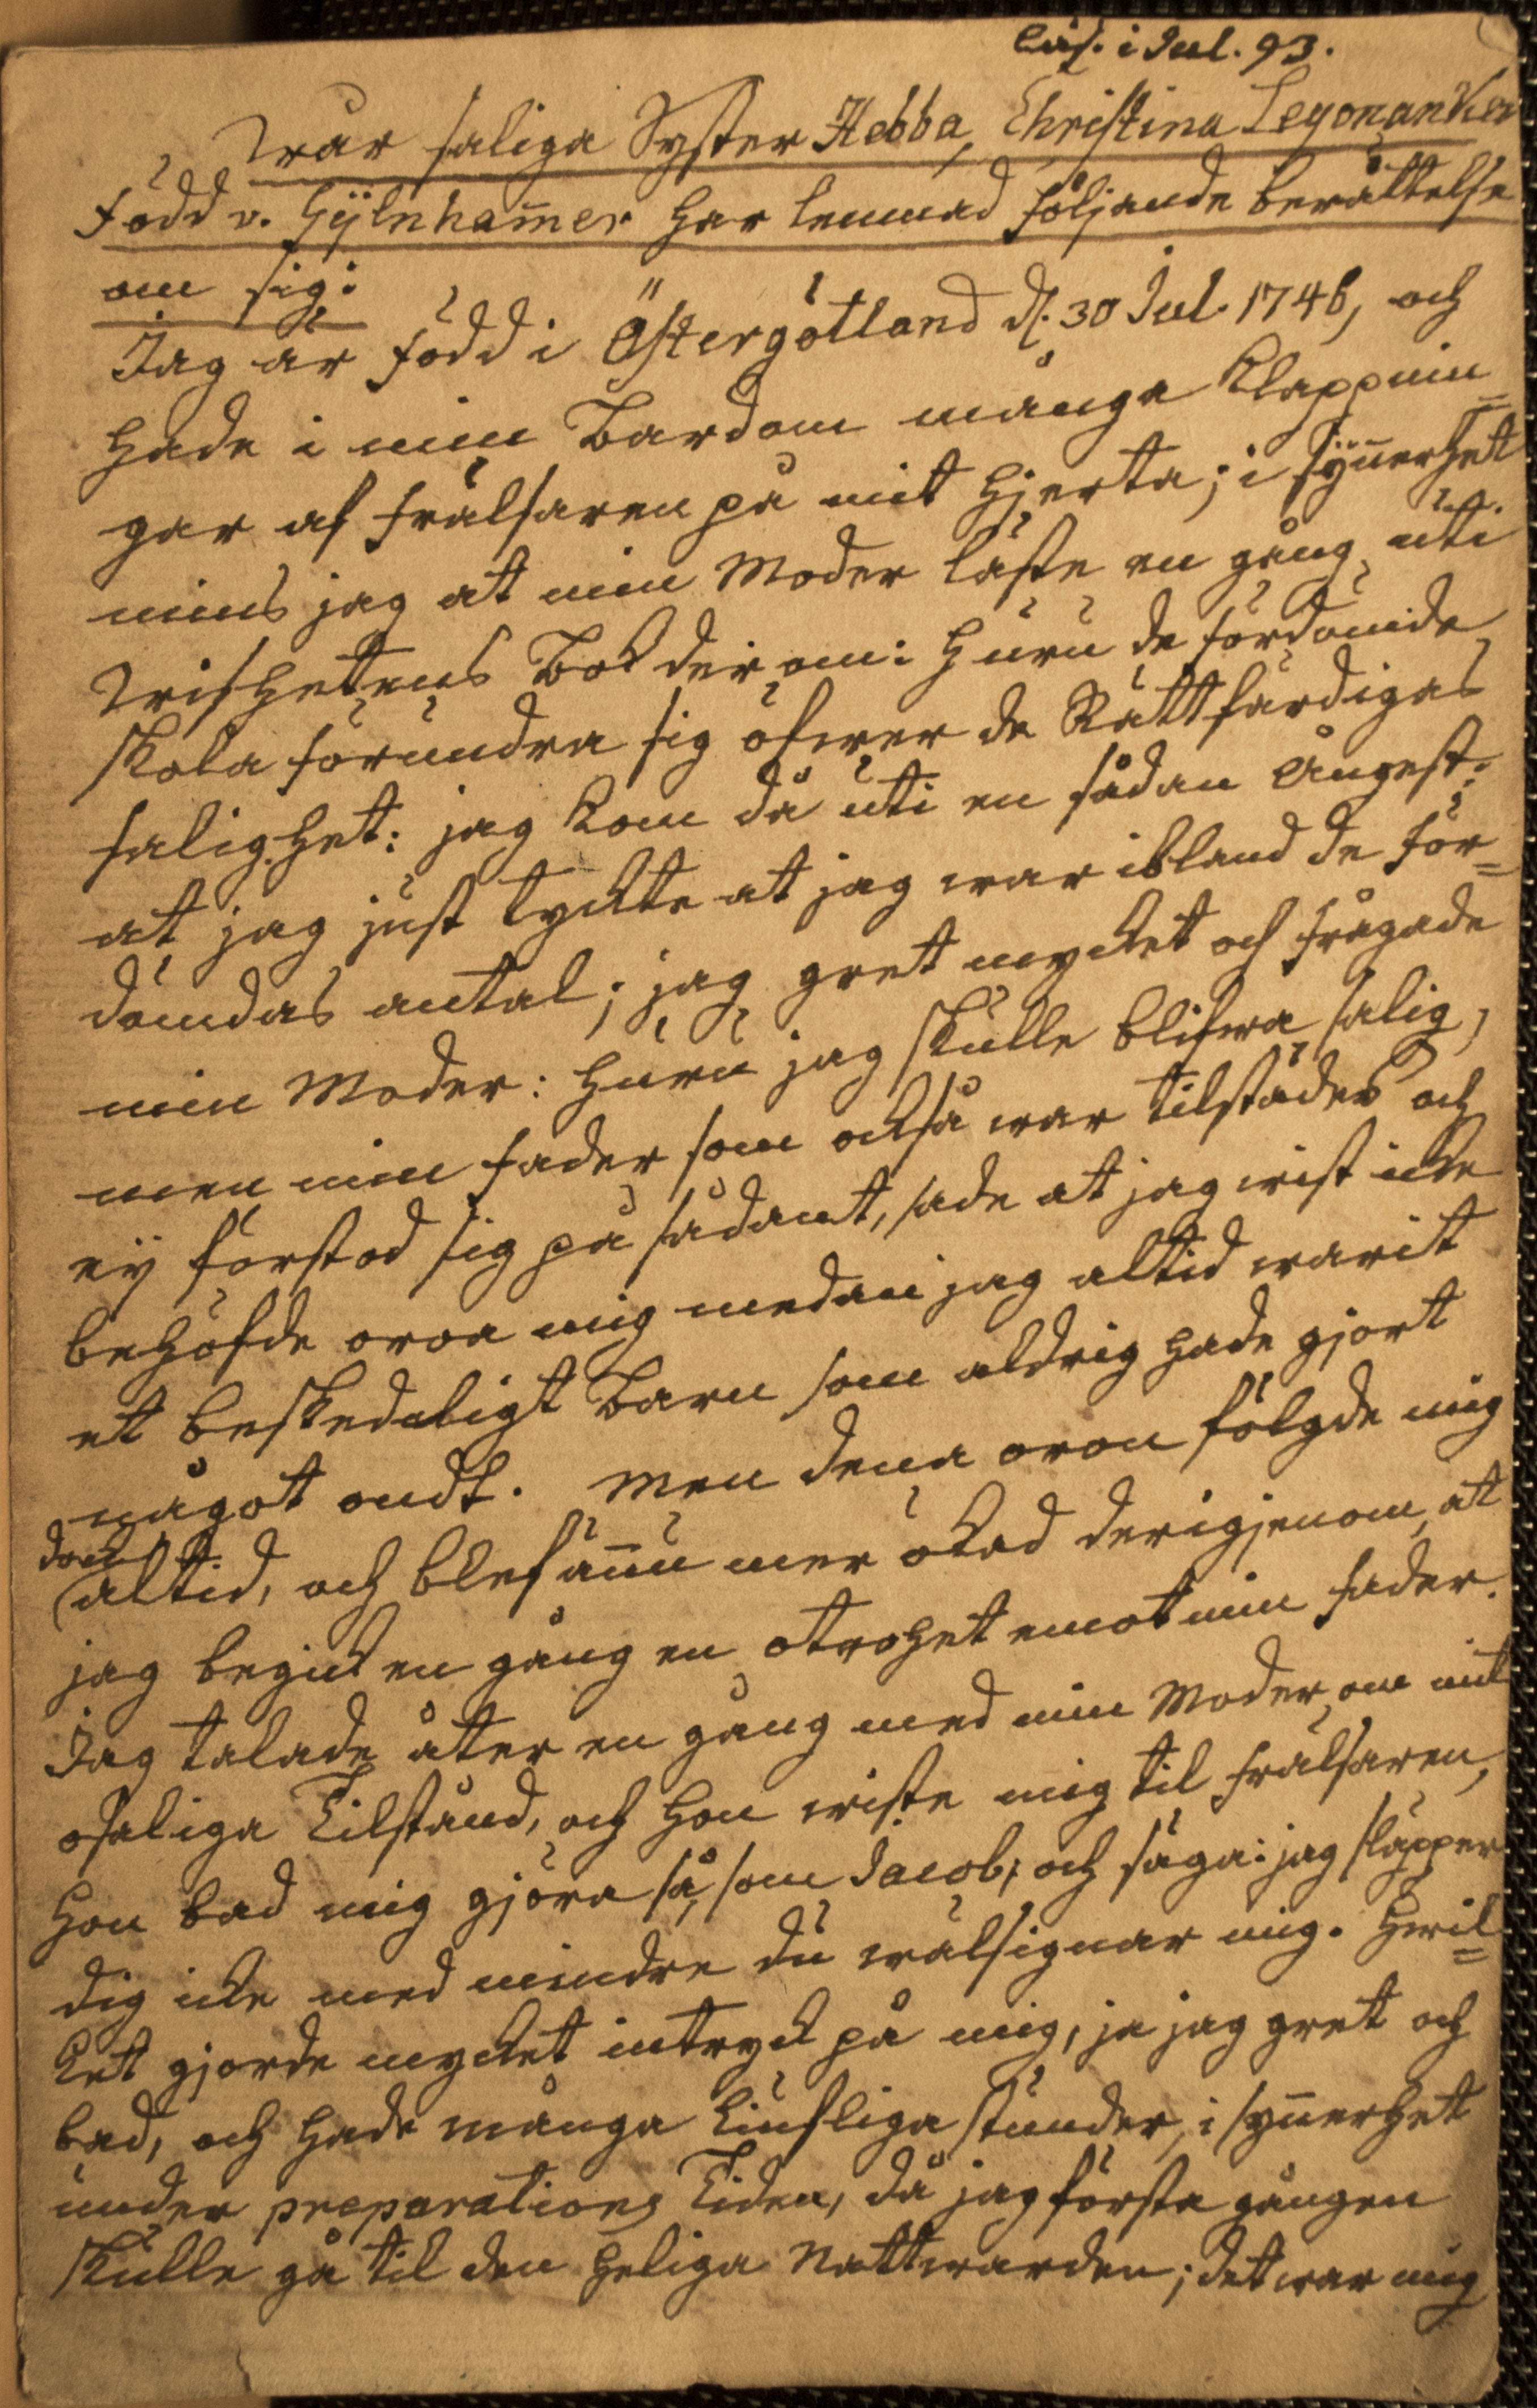 Läs. i Jul. 93.
Wår saliga Syster Hebba, Christina Leyonanker
född v. Gÿlnham̅er har lemnad följande berättelse
om sig:
Jag är född i Östergötland d. 30 Jul. 1746, och
hade i min Barndom många Klappnin=
gar af frälsaren på mit hjerta; i sÿn̅erhet
mins jag at min Moder läste en gång uti
Wishetens Bok der om: huru de fördömde
skola förundra sig öfwer de Rättfärdigas
salighet: jag kom då uti en sådan Ångest:
at jag just tyckte at jag war ibland de för=
dömdas antal; jag gret mycket och frågade
min Moder: huru jag skulle blifwa salig,
men min fader som också war tilstädes och
eÿ förstod sig på sådant, sade at jag wist icke
behöfde oroa mig medan jag altid warit
et beskedeligt Barn som aldrig hade gjort
något ondt. Men den̅a oron fölgde mig
dock
altid, och blef än̅u mer ökad derigjenom, at
jag begick en gång en otrohet emot min fader.
Jag talade åter en gång med min Moder, om mit
osaliga Tilstånd, och hon wiste mig til frälsaren,
hon bad mig gjöra så, som Jacob, och säga: jag släpper
dig icke med mindre du wälsignar mig. Hwil=
ket gjorde mycket intryck på mig, ja jag gret och
bad, och hade många liufliga stunder, i syn̅erhet
under preparations Tiden, då jag första gången
skulle gå til den heliga Nattwarden; det war mig